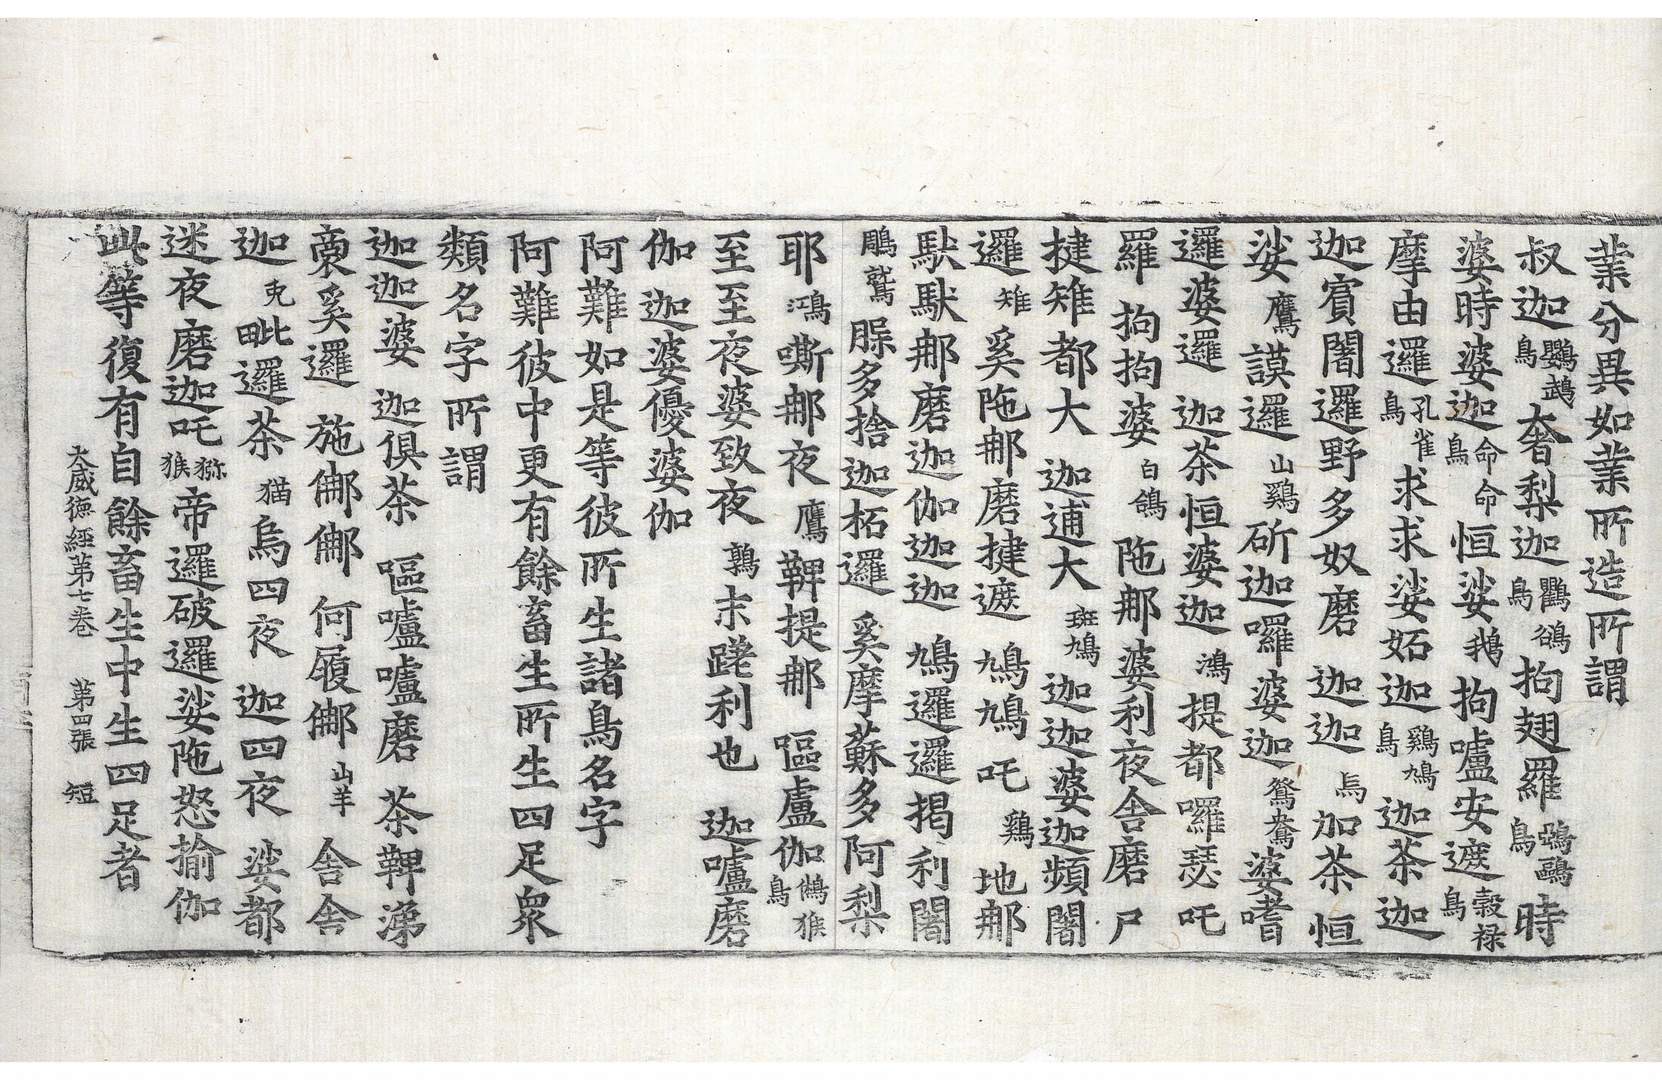 業分異如業所造所謂
叔迦鸚鵡鳥奢梨迦鸜鵒鳥拘翅羅鵶鷗鳥時
婆時婆迦命命鳥恒娑鵝拘嚧安遮轂祿鳥
摩由邏孔雀鳥求求娑妬迦鷄鳩鳥迦茶迦
迦賓闍邏野多奴磨 迦迦烏加茶 恒
娑鷹謨邏山鷄斫迦囉婆迦鴛鴦婆嗜
邏婆邏 迦茶恒婆迦鴻提都囉瑟吒
羅 拘拘婆白鴿陁那婆利夜舍磨 尸
揵雉都大 迦逋大斑鳩迦迦婆迦頻闍
邏雉奚陁那磨揵遮 鳩鳩吒鷄地那
馱馱那磨迦伽迦迦 鳩邏邏揭利闍
鵰鷲脲多捨迦柘邏 奚摩蘇多阿梨
耶鴻嘶那夜鷹鞞提那 嘔盧伽鵂猴鳥
至至夜婆致夜鶉末蹉利也 迦嚧磨
伽 迦婆優婆伽
阿難如是等彼所生諸鳥名字
阿難彼中更有餘畜生所生四足衆
類名字所謂
迦迦婆 迦俱茶 嘔嚧嚧磨 茶鞞涕
禀奚邏 施𨚗𨚗 何履𨚗山羊 舍舍
迦兎毗邏茶猫烏四夜 迦四夜 娑都
迷夜磨迦吒猕猴帝邏破邏娑陁怒揄伽
此等復有自餘畜生中生四足者
大威德經第七卷 第四張 短